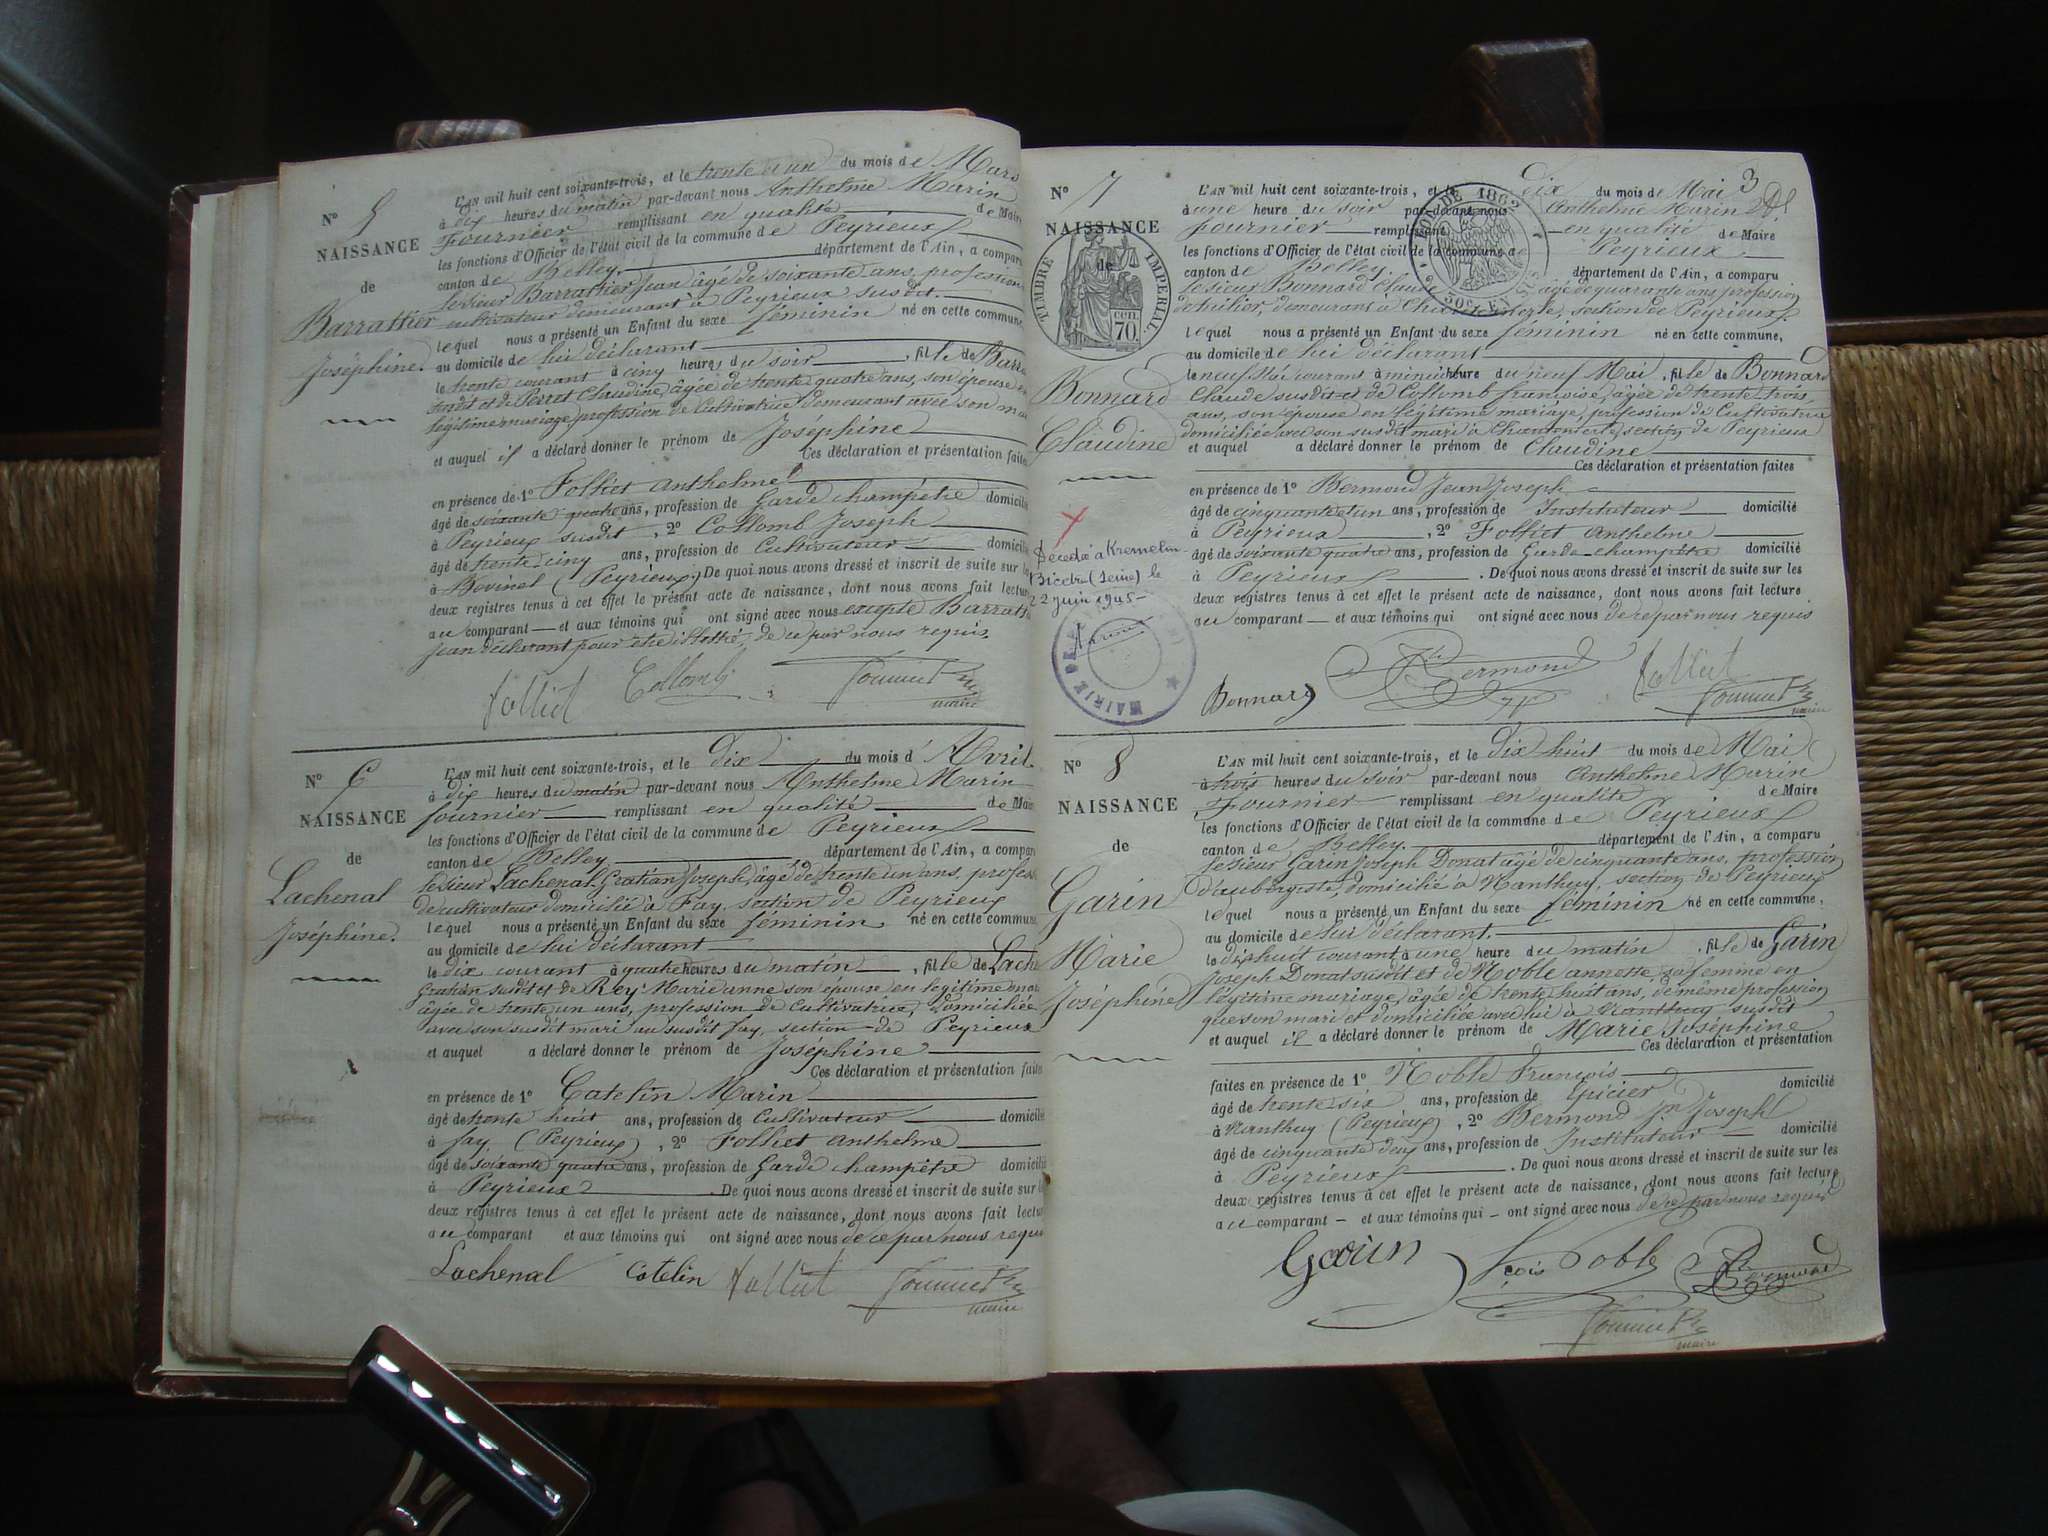 N° 5
NAISSANCE
de
Barrattier
Joséphine.
L'AN mil huit cent soixante-trois, et le trente et un du mois de Mars
à dix heures du matin par-devant nous Anthelme Marin
Fournier remplissant en qualité de Maire
les fonctions d'Officier de l'état civil de la commune de Peyrieux
canton de Belley. département de l'Ain, a comparu
le sieur Barrattier Jean âgé de soixante ans, profession
cultivateur demeurant à Peyrieux susdit.
lequel nous a présenté un Enfant du sexe féminin né en cette commune,
au domicile de lui déclarant
le trente courant à cinq heures du soir, fille de Barra
susdit et de Perret Claudine, âgée de trente quatre ans, son épouse en
légitime mariage, profession de Cultivatrice demeurant avec son mari
et auquel il a déclaré donner le prénom de Joséphine
Ces déclaration et présentation faites
en présence de 1° Folliet Anthelme
âgé de soixante quatre ans, profession de Garde champêtre domicilié
à Peyrieux susdit, 2° Collomb Joseph
âgé de trente cinq ans, profession de Cultivateur domicilié
à Bovinel (Peyrieux) De quoi nous avons dressé et inscrit de suite sur les
deux registres tenus à cet effet le présent acte de naissance, dont nous avons fait lecture
au comparant et aux témoins qui ont signé avec nous excepté Barratti
Jean déclarant pour être illettré, de ce par nous requis.
Folliet Collomb Fournier
maire
N° 6
NAISSANCE
de
Lachenal
Joséphine.
L'AN mil huit cent soixante-trois, et le dix du mois d'Avril.
à dix heures du matin par-devant nous Anthelme Marin
fournier remplissant en qualité de Maire
les fonctions d'Officier de l'état civil de la commune de Peyrieux
canton de Belley. département de l'Ain, a comparu
le sieur Lachenal Gratian Joseph, âgé de trente un ans, profess
de cultivateur domicilié à Fay, section de Peyrieux
lequel nous a présenté un Enfant du sexe féminin né en cette commune,
au domicile de lui déclarant
le dix courant à quatre heures du matin, fille de Lache
Gratian susdit et de Rey Marie anne son épouse en légitime
âgée de trente un ans, profession de Cultivatrice, domiciliée
avec son susdit mari au susdit fay, section de Peyrieux
et auquel a déclaré donner le prénom de Joséphine
Ces déclaration et présentation faites
en présence de 1° Catelin Marin
âgé de trente huit ans, profession de Cultivateur domicilié
à fay (Peyrieux), 2° Folliet Anthelme
âgé de soixante quatre ans, profession de Garde champêtre domicilié
à Peyrieux. De quoi nous avons dressé et inscrit de suite sur l
deux registres tenus à cet effet le présent acte de naissance, dont nous avons fait lectur
au comparant et aux témoins qui ont signé avec nous de ce par nous requi
Lachenal Catelin Folliet Fournier
maire
3
N° 7
NAISSANCE
de
TIMBRE IMPERIAL
CEN. 70.
Bonnard
Claudine
Décédée à Kremelin-
Bicêtre (Seine) le
22 juin 1945
MAIRIE DE
L'AN mil huit cent soixante-trois, et le dix du mois de Mai
à une heure du soir par-devant nous Anthelme Marin
fournier remplissant en qualité de Maire
les fonctions d'Officier de l'état civil de la commune de Peyrieux
canton de Belley. département de l'Ain, a comparu
le sieur Bonnard Claude âgé de quarante ans, profession
d'huilier, demeurant à Chantemerle, section de Peyrieux.
lequel nous a présenté un Enfant du sexe féminin né en cette commune,
au domicile de lui déclarant
le neuf Mai courant à heure du neuf Mai, fille de Bonnard
Claude susdit et de Collomb françoise, âgée de trente trois
ans, son épouse en légitime mariage, profession de Cultivatrice
domiciliée avec son susdit mari à Chantemerle, section de Peyrieux
et auquel a déclaré donner le prénom de Claudine
Ces déclaration et présentation faites
en présence de 1° Bermond Jean Joseph
âgé de cinquante et un ans, profession de Instituteur domicilié
à Peyrieux, 2° Folliet Anthelme
âgé de soixante quatre ans, profession de Garde champêtre domicilié
à Peyrieux. De quoi nous avons dressé et inscrit de suite sur les
deux registres tenus à cet effet le présent acte de naissance, dont nous avons fait lecture
au comparant et aux témoins qui ont signé avec nous de ce par nous requis
Bonnard Bermond Folliet
Fournier
maire
N° 8
NAISSANCE
de
Garin
Marie
Joséphine
L'AN mil huit cent soixante-trois, et le dix huit du mois de Mai
à trois heures du soir par-devant nous Anthelme Marin
Fournier remplissant en qualité de Maire
les fonctions d'Officier de l'état civil de la commune de Peyrieux
canton de Belley. département de l'Ain, a comparu
le sieur Garin Joseph Donat âgé de cinquante ans, profession
d'aubergiste, domicilié à Nanthuy, section de Peyrieux
lequel nous a présenté un Enfant du sexe féminin né en cette commune,
au domicile de lui déclarant.
le dix huit courant à une heure du matin, fille de Garin
Joseph Donat susdit et de Noble annette, sa femme en
légitime mariage, âgée de trente huit ans, de même profession
que son mari et domiciliée avec lui à Nanthuy susdit
et auquel il a déclaré donner le prénom de Marie Joséphine
Ces déclaration et présentation
faites en présence de 1° Noble François
âgé de trente six ans, profession de Epicier domicilié
à Nanthuy (Peyrieux), 2° Bermond Jn Joseph
âgé de cinquante deux ans, profession de Instituteur domicilié
à Peyrieux. De quoi nous avons dressé et inscrit de suite sur les
deux registres tenus à cet effet le présent acte de naissance, dont nous avons fait lecture
au comparant et aux témoins qui ont signé avec nous de ce par nous requis
Garin Fçois Noble Bermond
Fournier
maire